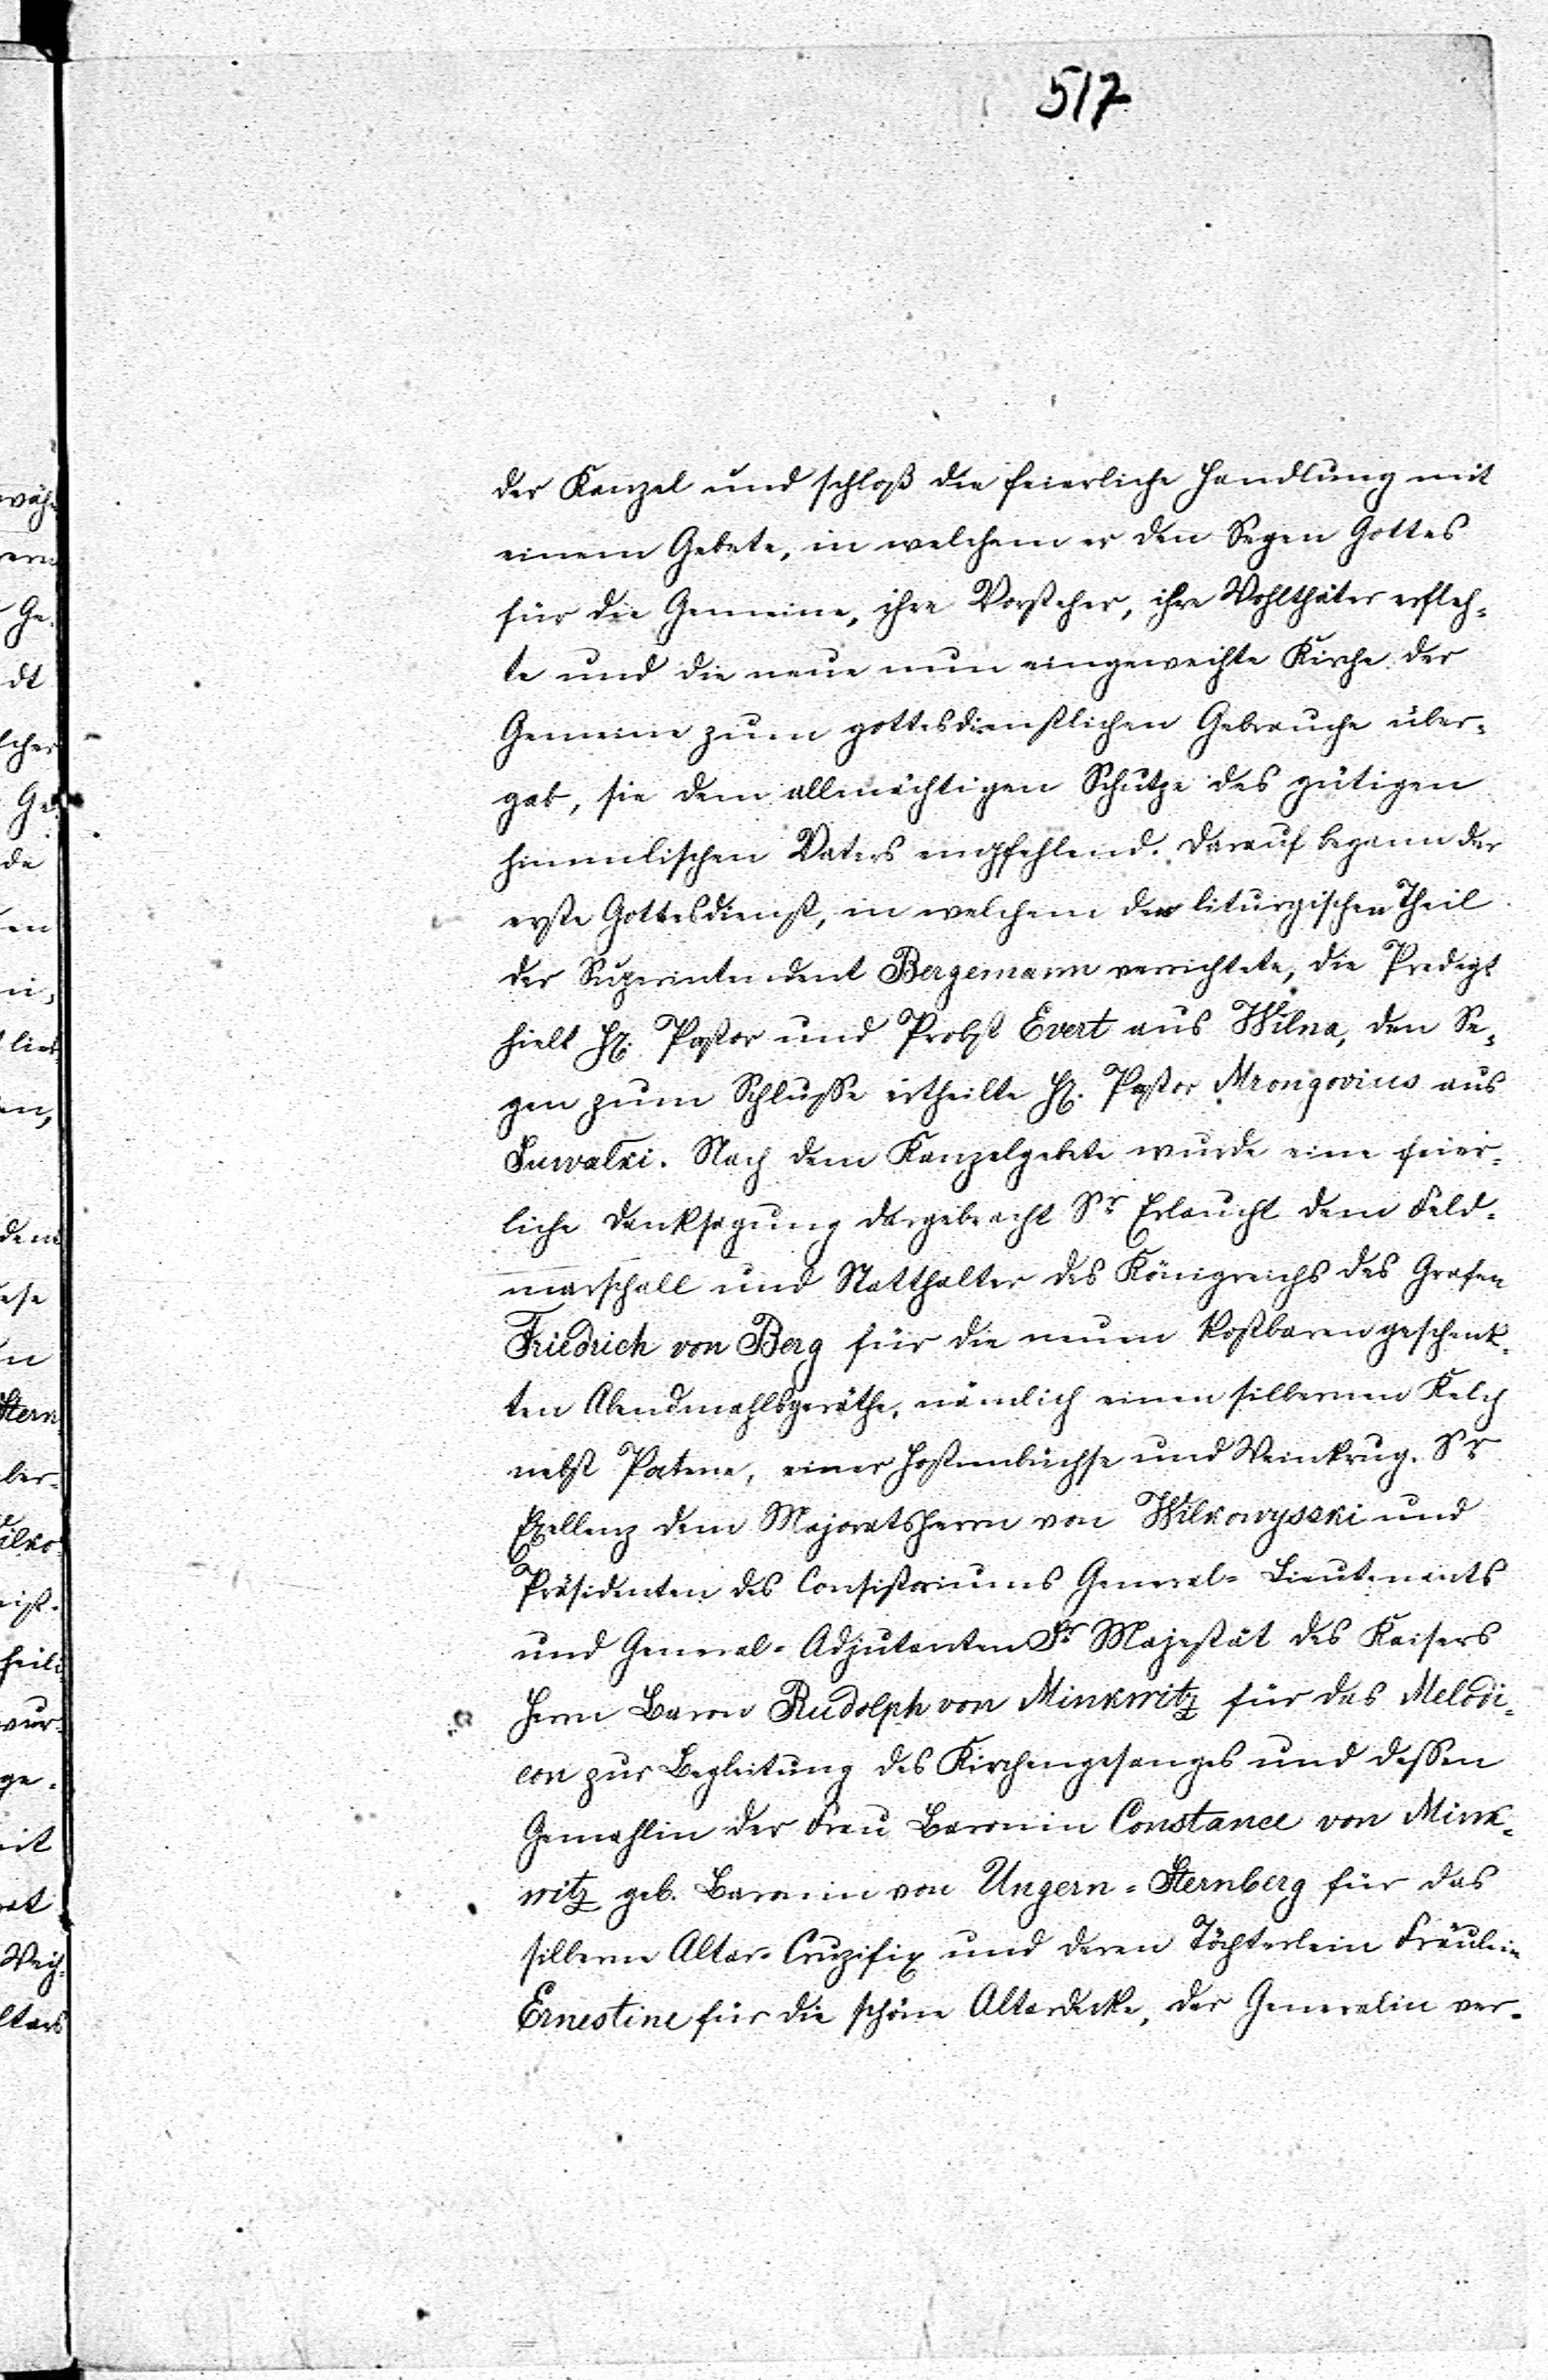 517
der Kanzel und schloß die feierliche Handlung mit
einem Gebete, in welchem er den Segen Gottes
für die Gemeine, ihre Vorsteher, ihre Wohlthäter erfleh-
te und die neue nun eingeweihte Kirche der
Gemeine zum gottesdienstlichen Gebrauche über-
gab, sie dem allmächtigen Schutze des gütigen
himmlischen Vaters empfehlend. Darauf begann der
erste Gottesdienst, in welchem den liturgischen Theil
der Superintendent Bergemann verrichtete, die Predigt
hielt H. Pastor und Probst Evert aus Wilna, den Se-
gen zum Schlusse ertheilte H. Pastor Mrongovius aus
Suwalki. Nach dem Kanzelgebete wurde eine feier-
liche Danksagung dargebracht Sr Erlaucht dem Feld-
marschall und Statthalter des Königreichs des Grafen
Friedrich von Berg für die neuen kostbaren geschenk-
ten Abendmahlsgeräthe, nämlich einen silbernen Kelch
nebst Patene, einer Hostienbüchse und Weinkrug. Sr
Exellenz dem Majoratsherrn von Wilkowyszki und
Präsidenten des Consistoriums General-Lieutenants
und General-Adjutanten Sr Majestät des Kaisers
Herrn Baron Rudolph von Minkwitz für das Melodi-
con zur Begleitung des Kirchengesanges und dessen
Gemahlin der Frau Baronin Constance von Mink-
witz geb. Baronin von Ungern-Sternberg für das
silberne Altar-Cruzifix und deren Töchterlein Fräulein
Ernestine für die schöne Altardecke, der Generalin ver-